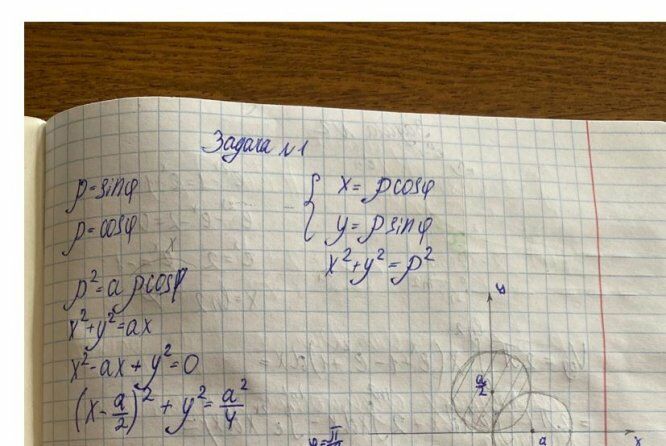 Задача №1
ρ=sinφ
ρ=cosφ
{ x=ρcosφ
y=ρsinφ
x²+y²=ρ²
ρ²=aρcosφ
x²+y²=ax
x²-ax+y²=0
(x-a/2)²+y²=a²/4
y
a/2
a
x